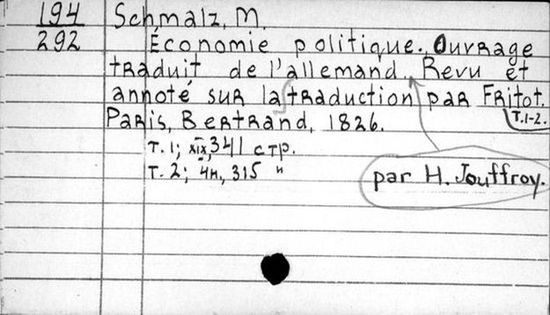 194
292
Schmalz, M.
Économie politique. Ouvrage
traduit de l'allemand. Revu et
annoté sur la traduction par Fritot.
Paris, Bertrand, 1826.
T.1-2.
T. 1; XIX, 341 стр.
T. 2; 4н, 315 "
par H. Jouffroy.